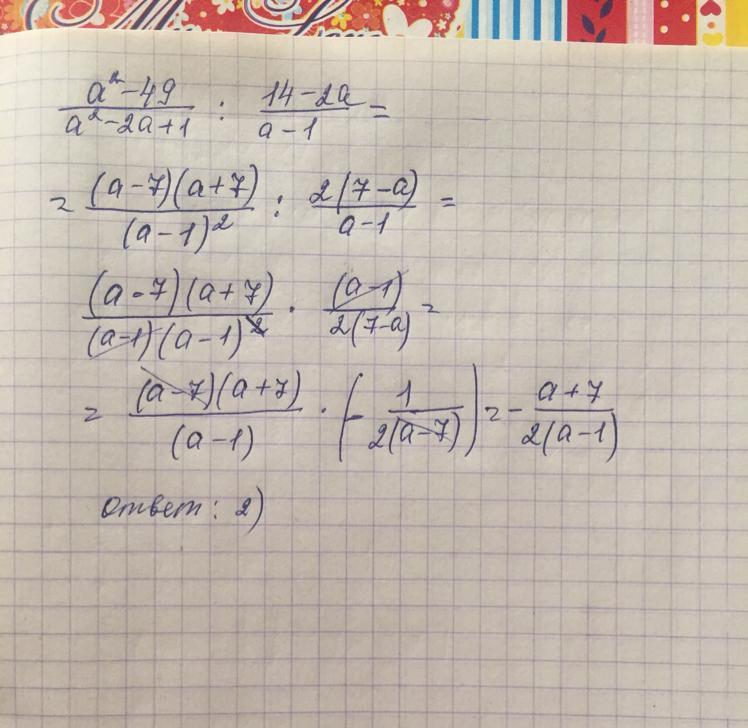 (a² - 49)/(a² - 2a + 1) : (14 - 2a)/(a - 1) =
= ((a - 7)(a + 7))/((a - 1)²) : (2(7 - a))/(a - 1) =
((a - 7)(a + 7))/((a - 1)(a - 1)²) · (a - 1)/(2(7 - a)) =
= ((a - 7)(a + 7))/((a - 1)) · (- 1/(2(a - 7))) = - (a + 7)/(2(a - 1))
Ответ: 2)